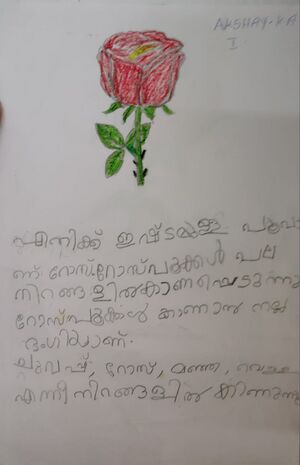 AKSHAY-KA
I
എനിക്ക് ഇഷ്ടമുള്ള പൂവാ
ണ് റോസ്.റോസ്പൂക്കൾ പല
നിറങ്ങളിൽകാണപ്പെടുന്നു
റോസ്പൂക്കൾ കാണാൻ നല്ല
ഭംഗിയാണ്.
ചുവപ്പ്, റോസ്, മഞ്ഞ, വെള്ള
എന്നീ നിറങ്ങളിൽ കാണുന്നു